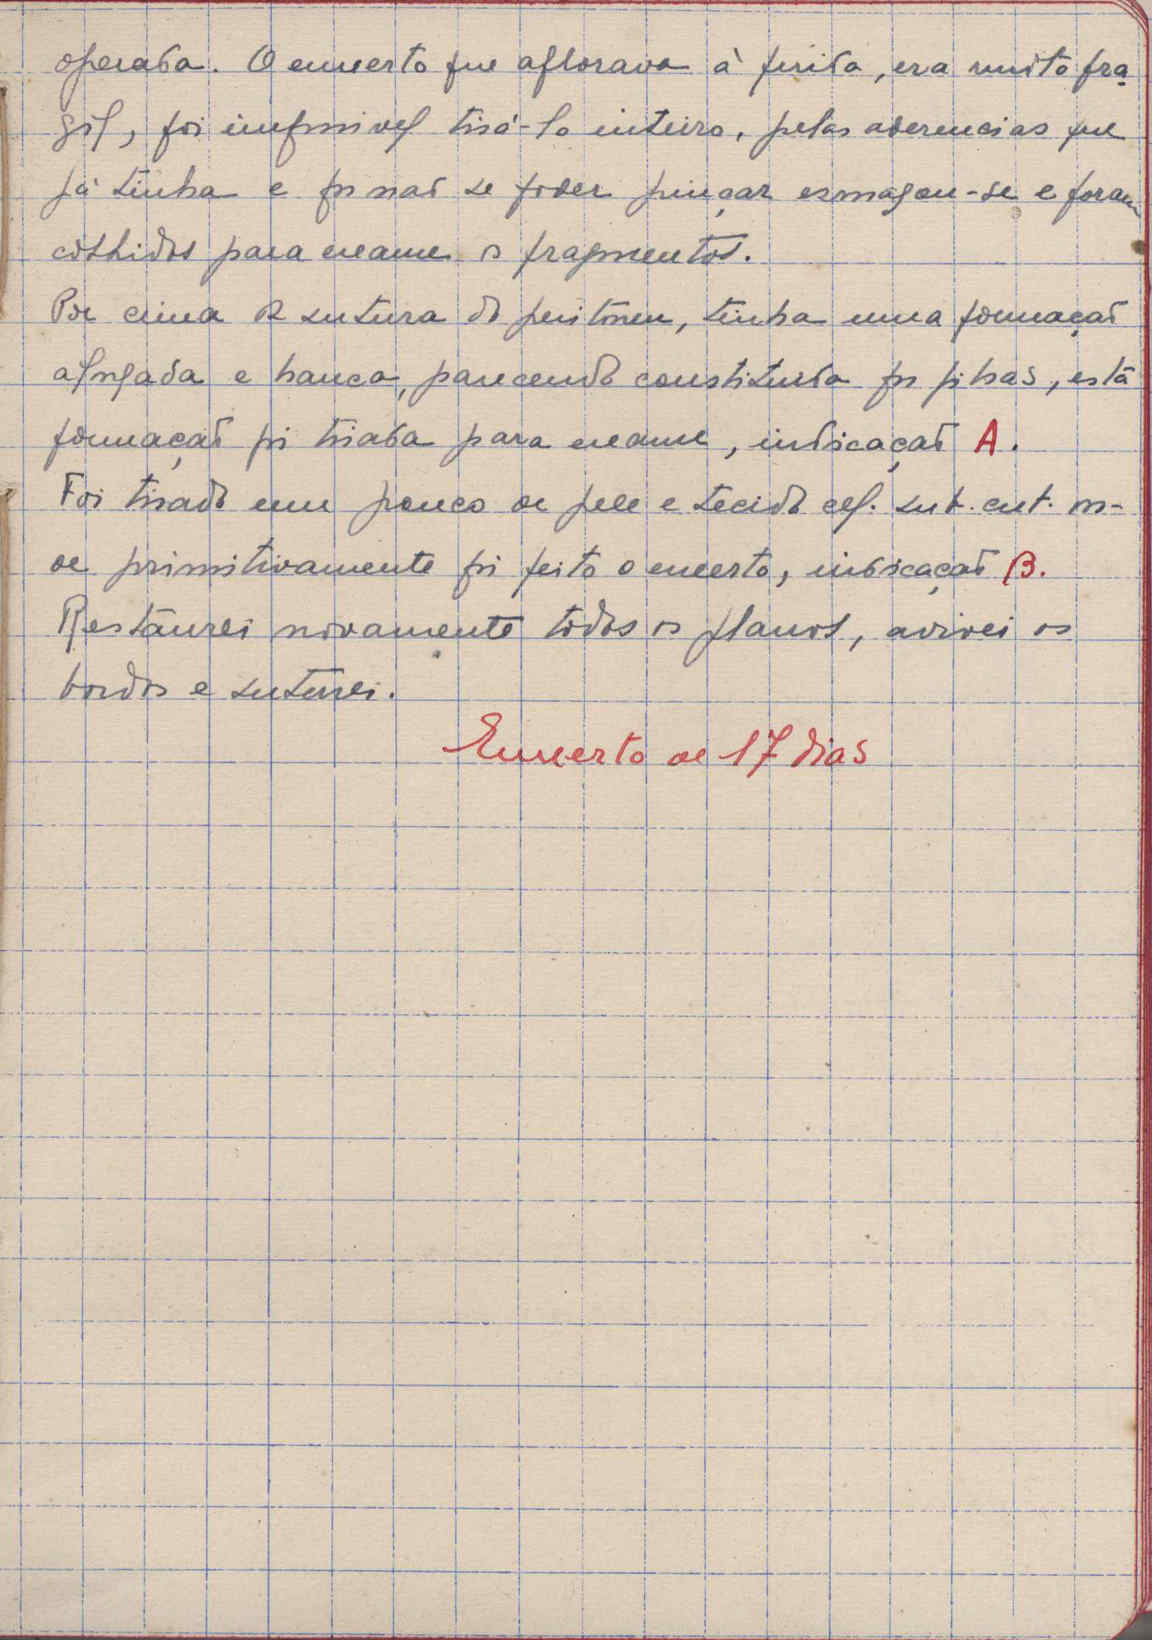 operada. O enxerto que aflorava à ferida, era muito fra
gil, foi impossivel tirá-lo inteiro, pelas aderencias que
já tinha e por não se poder pinçar esmagou-se e foram
colhidos para exame os fragmentos.
Por cima da sutura do peritoneu, tinha uma formação
alongada e branca, parecendo constituida por fibras, está
formação foi tirada para exame, indicação A.
Foi tirado um pouco de pele e tecido cel. sub. cut. on-
de primitivamente foi feito o enxerto, indicação B.
Restaurei novamente todos os planos, avivei os
bordos e suturei.
Enxerto de 17 dias